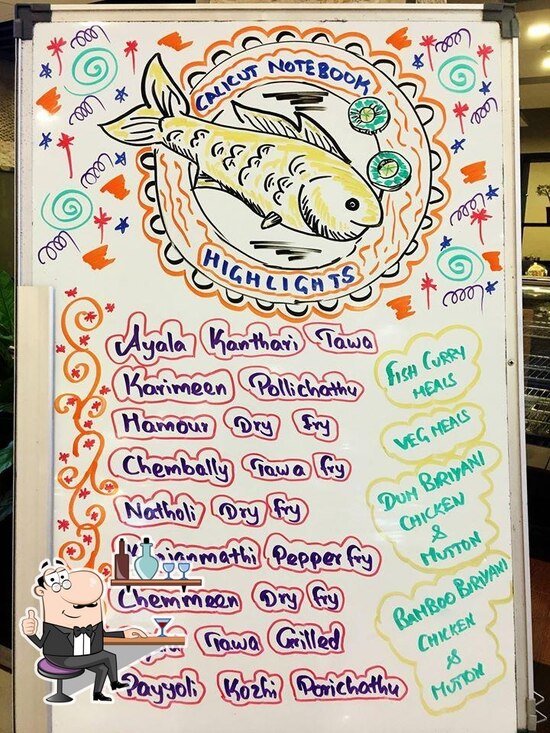 CALICUT NOTEBOOK
HIGHLIGHTS
Ayala Kanthari Tawa
Karimeen Pollichathu
Hamour Dry fry
Chembally Tawa fry
Natholi Dry fry
Pepper fry
Chemmeen Dry fry
Tawa Grilled
Payyoli Kozhi Porichathu
FISH CURRY
MEALS
VEG MEALS
DUM BIRIYANI
CHICKEN
&
MUTTON
BAMBOO BIRIYANI
CHICKEN
&
MUTTON